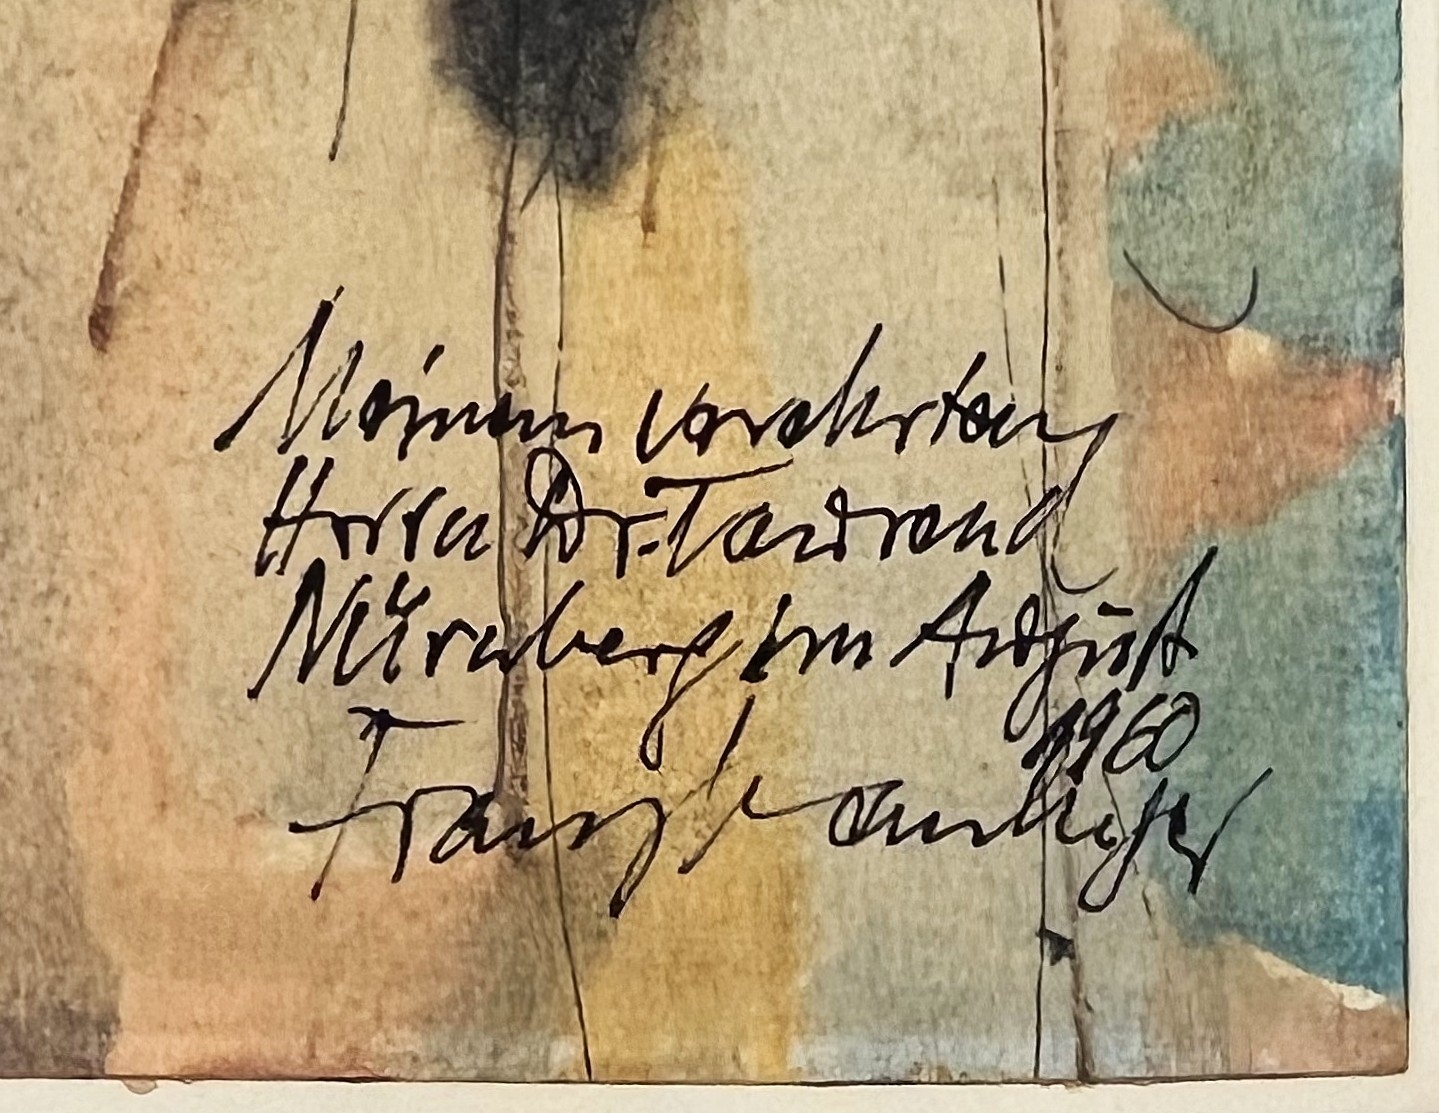 Meinem verehrten
Herrn Dr. Tawrend
Nürnberg im August
1960
Franz